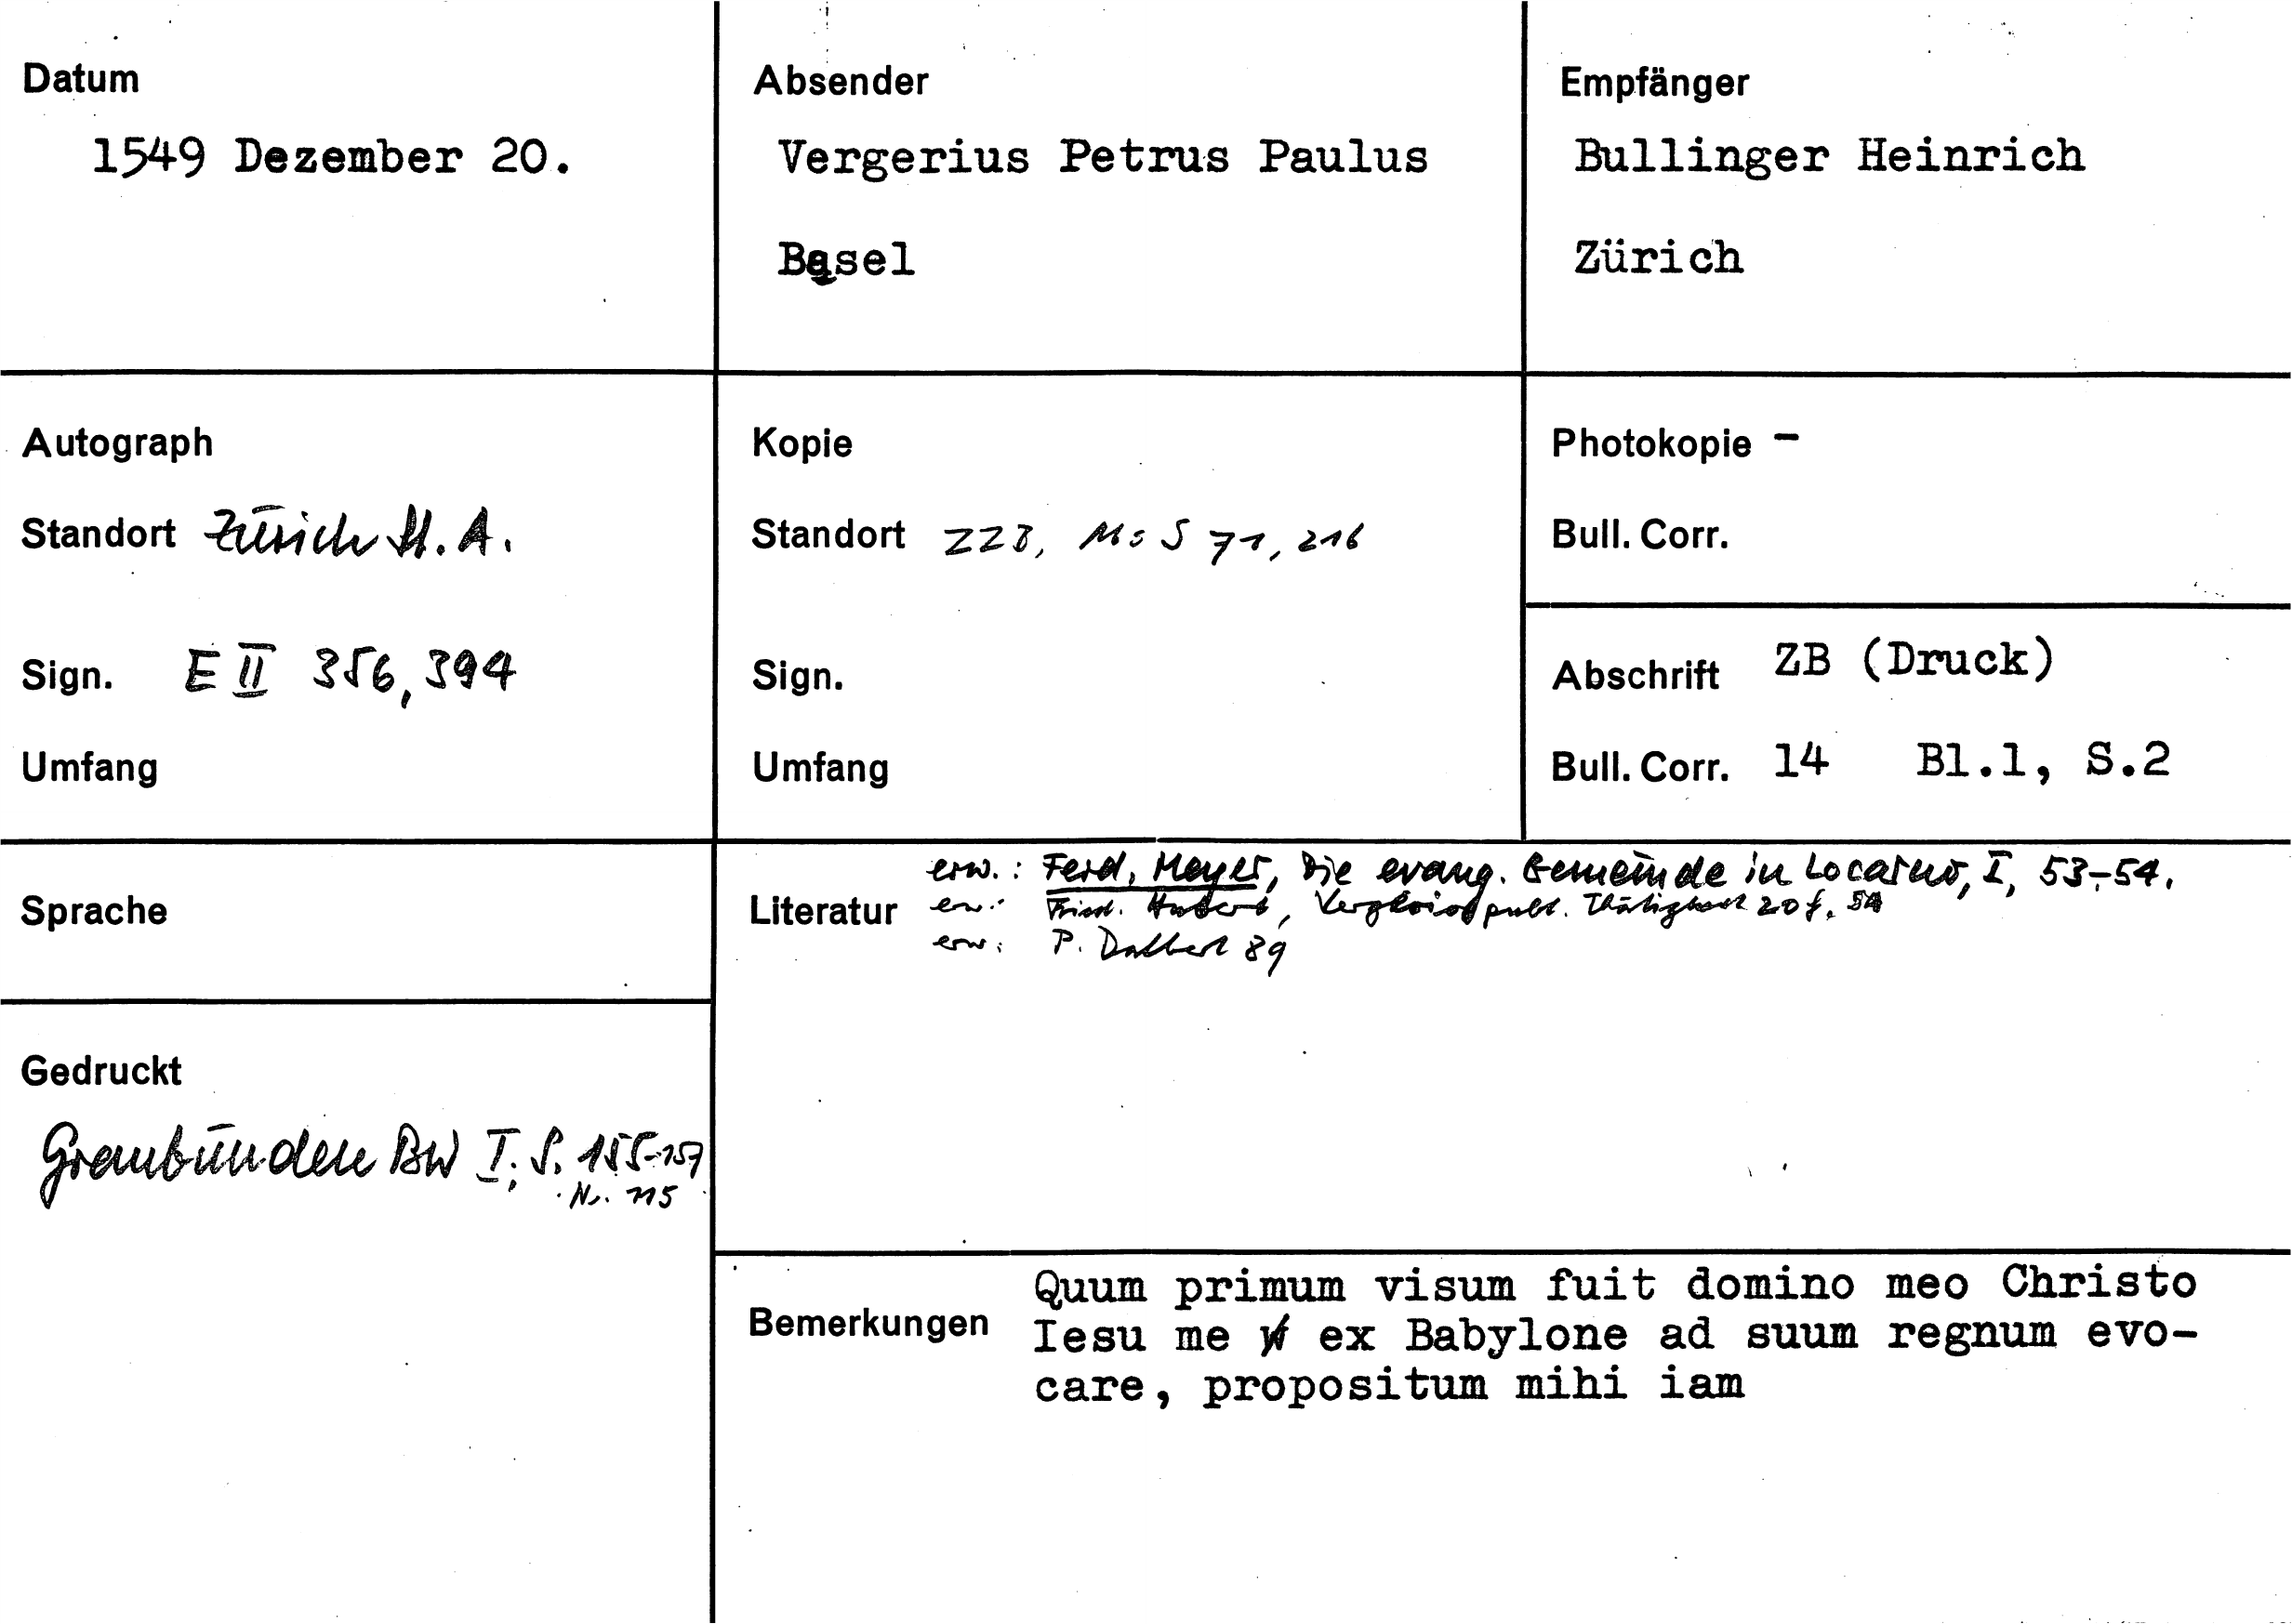 Datum
1549 Dezember 20.
Absender
Vergerius Petrus Paulus
Basel
Empfänger
Bullinger Heinrich
Zürich
Autograph
Standort Zürich St. A.
Sign. E II 356, 394
Umfang
Kopie
Standort ZZB, Ms S 71, 216
Sign.
Umfang
Photokopie -
Bull. Corr.
Abschrift ZB (Druck)
Bull. Corr. 14 Bl.1, S.2
Sprache
Gedruckt
Graubünden BW I, S. 155-157
Nr. 115
Literatur
erw.: Ferd. Meyer, Die evang. Gemeinde in Locarno, I, 53-54.
erw: Fried. Hubert, publ. Thätigkeit 20 f. 54
erw: P. Dalbert 89
Bemerkungen
Quum primum visum fuit domino meo Christo
Iesu me ex Babylone ad suum regnum evo-
care, propositum mihi iam